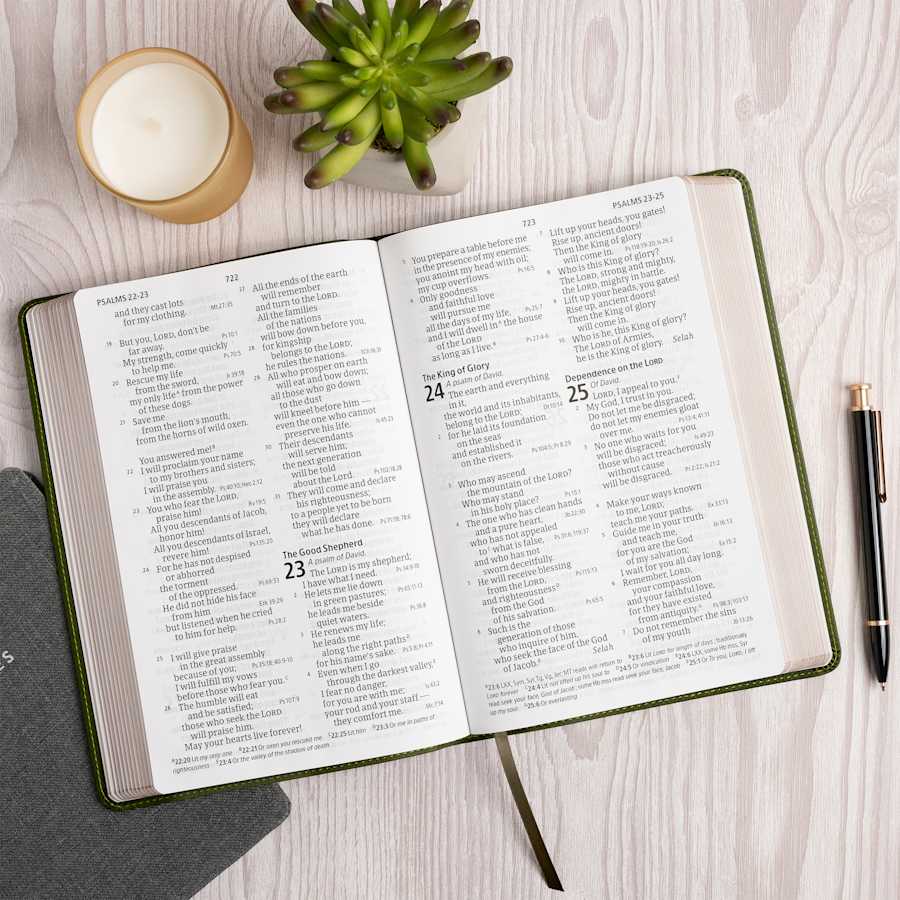 PSALMS 22-23
722
and they cast lots
for my clothing. Mt 27:35
19 But you, LORD, don't be
far away. Ps 10:1
My strength, come quickly
to help me. Ps 70:5
20 Rescue my life
from the sword, Jr 39:18
my only life from the power
of these dogs.
21 Save me
from the lion's mouth,
from the horns of wild oxen.
You answered me!
22 I will proclaim your name
to my brothers and sisters;
I will praise you
in the assembly. Ps 40:10; Heb 2:12
23 You who fear the LORD,
praise him! Ps 19:5
All you descendants of Jacob,
honor him!
All you descendants of Israel,
revere him! Ps 135:20
24 For he has not despised
or abhorred
the torment
of the oppressed. Ps 69:33
He did not hide his face
from him Ezk 39:29
but listened when he cried
to him for help. Ps 28:2
25 I will give praise
in the great assembly
because of you; Ps 35:18; 40:9-10
I will fulfill my vows
before those who fear you.
26 The humble will eat
and be satisfied; Ps 107:9
those who seek the LORD
will praise him.
May your hearts live forever!
27 All the ends of the earth
will remember
and turn to the LORD.
All the families
of the nations
will bow down before you,
28 for kingship
belongs to the LORD;
he rules the nations.
29 All who prosper on earth
will eat and bow down;
all those who go down
to the dust
will kneel before him —
even the one who cannot
preserve his life. Is 45:23
30 Their descendants
will serve him;
the next generation
will be told
about the Lord. Ps 102:18,28
31 They will come and declare
his righteousness;
to a people yet to be born
they will declare
what he has done. Ps 71:18; 78:6
The Good Shepherd
23 A psalm of David.
The LORD is my shepherd;
I have what I need. Ps 34:9-10
2 He lets me lie down
in green pastures; Ps 65:11-12
he leads me beside
quiet waters.
3 He renews my life; Ps 19:8
he leads me
along the right paths
for his name's sake. Ps 5:8; 143:11
4 Even when I go
through the darkest valley,
I fear no danger,
for you are with me; Is 43:2
your rod and your staff —
they comfort me. Mc 7:14
22:20 Lit my only one 22:21 Or oxen you rescued me 22:25 Lit him 23:3 Or me in paths of
righteousness 23:4 Or the valley of the shadow of death
723
PSALMS 23-25
5 You prepare a table before me
in the presence of my enemies;
you anoint my head with oil;
my cup overflows. Ps 16:5
6 Only goodness
and faithful love
will pursue me
all the days of my life, Ps 25:7
and I will dwell in the house
of the LORD
as long as I live. Ps 27:4-6
The King of Glory
24 A psalm of David.
The earth and everything
in it,
the world and its inhabitants,
belong to the LORD; Dt 10:14
2 for he laid its foundation
on the seas
and established it
on the rivers. Ps 104:5; Pr 8:29
3 Who may ascend
the mountain of the LORD?
Who may stand
in his holy place? Ps 15:1
4 The one who has clean hands
and a pure heart, Jb 22:30
who has not appealed
to what is false, Ps 31:6; 119:37
and who has not
sworn deceitfully.
5 He will receive blessing
from the LORD, Ps 115:13
and righteousness
from the God
of his salvation. Ps 65:5
6 Such is the
generation of those
who inquire of him,
who seek the face of the God
of Jacob. Selah
7 Lift up your heads, you gates!
Rise up, ancient doors!
Then the King of glory
will come in. Ps 118:19-20; Is 26:2
8 Who is this King of glory?
The LORD, strong and mighty,
the LORD, mighty in battle.
9 Lift up your heads, you gates!
Rise up, ancient doors!
Then the King of glory
will come in.
10 Who is he, this King of glory?
The LORD of Armies,
he is the King of glory. Selah
Dependence on the LORD
25 Of David.
LORD, I appeal to you.
2 My God, I trust in you.
Do not let me be disgraced;
do not let my enemies gloat
over me. Ps 13:4; 41:11
3 No one who waits for you
will be disgraced; Is 49:23
those who act treacherously
without cause
will be disgraced. Ps 2:22; Is 21:2
4 Make your ways known
to me, LORD;
teach me your paths. Ex 33:13
5 Guide me in your truth
and teach me, Jn 16:13
for you are the God
of my salvation;
I wait for you all day long.
6 Remember, LORD, Ex 15:2
your compassion
and your faithful love,
for they have existed
from antiquity. Ps 98:3; 103:17
7 Do not remember the sins
of my youth Jb 13:26
23:6 LXX, Sym, Syr, Tg, Vg, Jer; MT reads will return to 23:6 Lit LORD for length of days; traditionally
LORD forever 24:4 Lit not lifted up his soul to 24:5 Or vindication 24:6 LXX, some Hb mss, Syr
read seek your face, God of Jacob; some Hb mss read seek your face, Jacob 25:1 Or To you, LORD, I lift
up my soul 25:6 Or everlasting